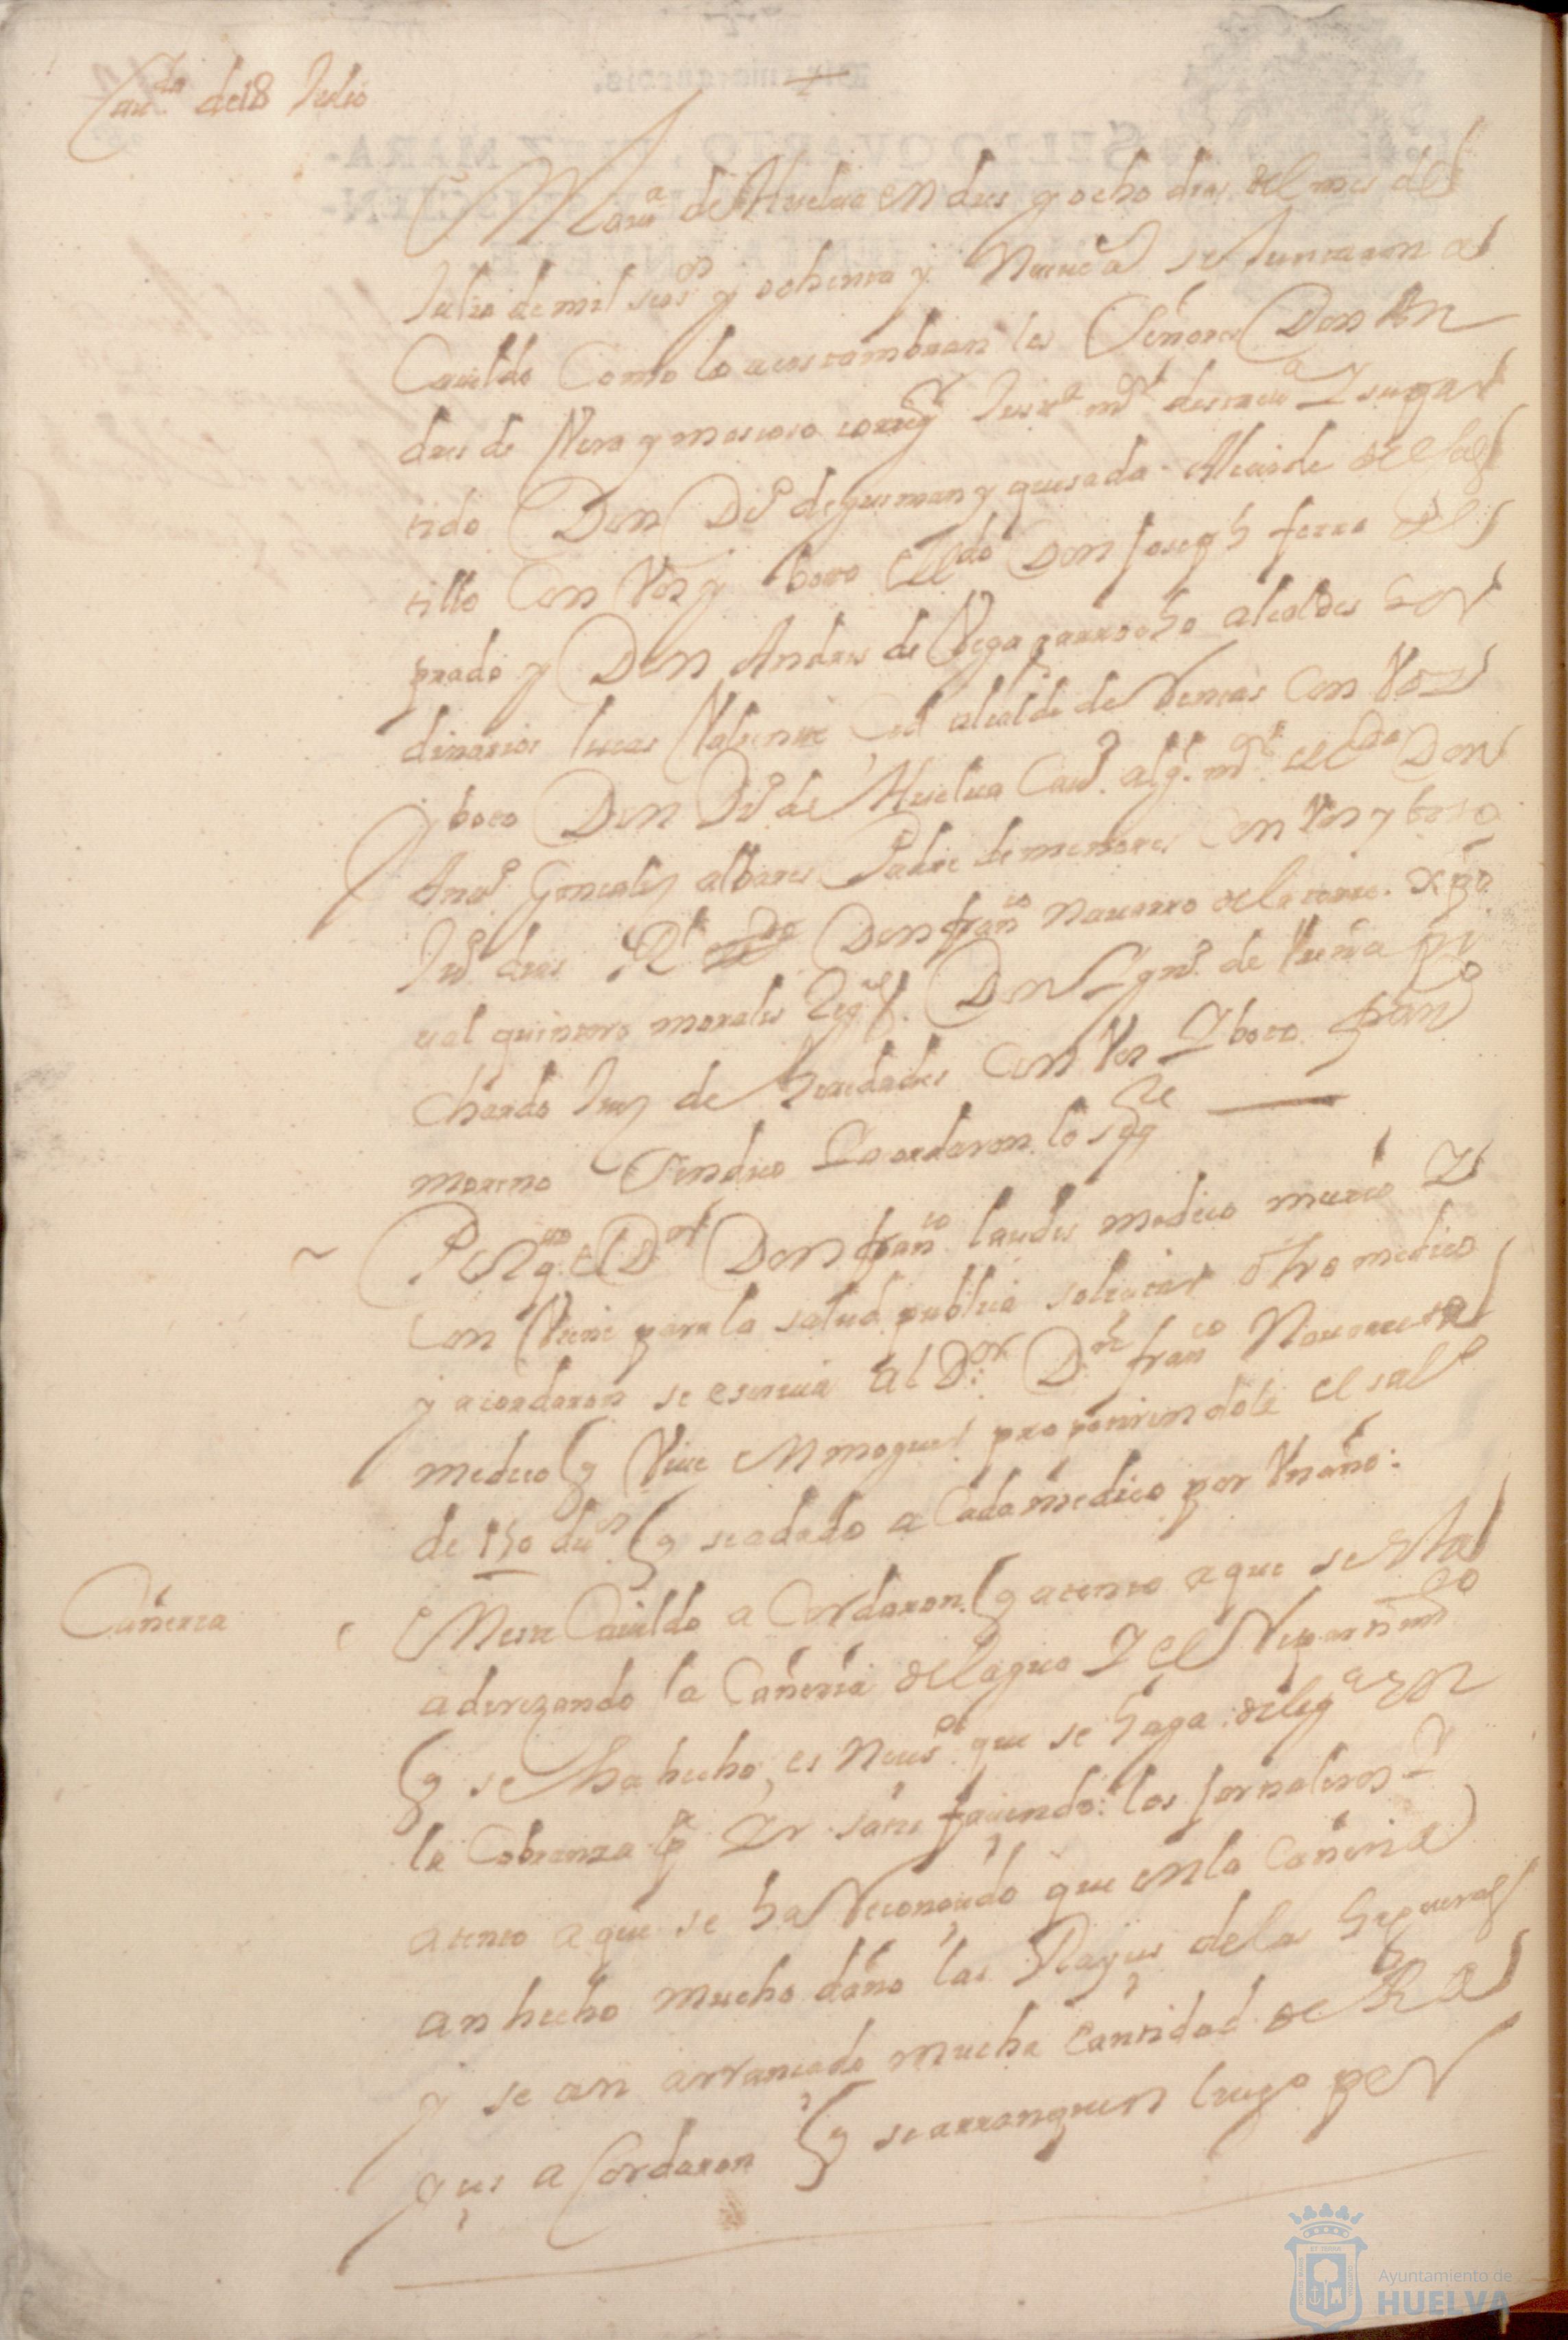 Cau.do de 18 Julio
En la v.a de Huelva en dies y ocho dias del mes de
Julio de mil seos.os y ochenta y nueve a.s se juntaron a
Cauildo Como lo acostumbran los Señores Don An
dres de Vera y moscoso correg.or Just.a m.or desta v.a Y su par
tido Don D.o de gusman y quesada Alcaide del cas
tillo Con Vos y boto el l.do Don Joseph ferra del
prado y Don Andres de Vega garrocho alcaldes hor
dinarios lucas Valiente alcalde de Rentas Con Voz
y boto Don D.o de Huelua Cau.o alg.l m.or el l.do Don
An.o Gonzales albares Padre de menores Con Vos y boto
Ju.o dias Don fran.co nauarro de la torre xpo
ual quintero morales Reg.s Don de Vuena pi
chardo Jues de heredades Con Vos Y boto fran.co
moreno Sindico Y acordaron lo sig.te
Por q.to el D.or Don fran.co laudes medico murio Y
Con Viene para la salud publica solicitar otro medico
y acordaron se escriua al D.or D.n fran.co Nauarrete
medico q Viue En moguer proponiendole el sal.o
de 150 du.os q se a dado a Cada medico por Vn año:
Cañeria
En este Cauildo a Cordaron q atento a que se esta
aderezando la Cañeria del agua Y el Repartim.to
q se ha hecho, es neces.o que se haga delig.a en
la Cobranza p.a Yr satis faciendo los jornaleros Y
atento a que se ha Reconocido que en la Cañeria
an hecho mucho daño las Rayses de las higueras
y se an arrancado mucha cantidad de Ra
yses a Cordaron q se arranquen luego por
Ayuntamiento de
HUELVA